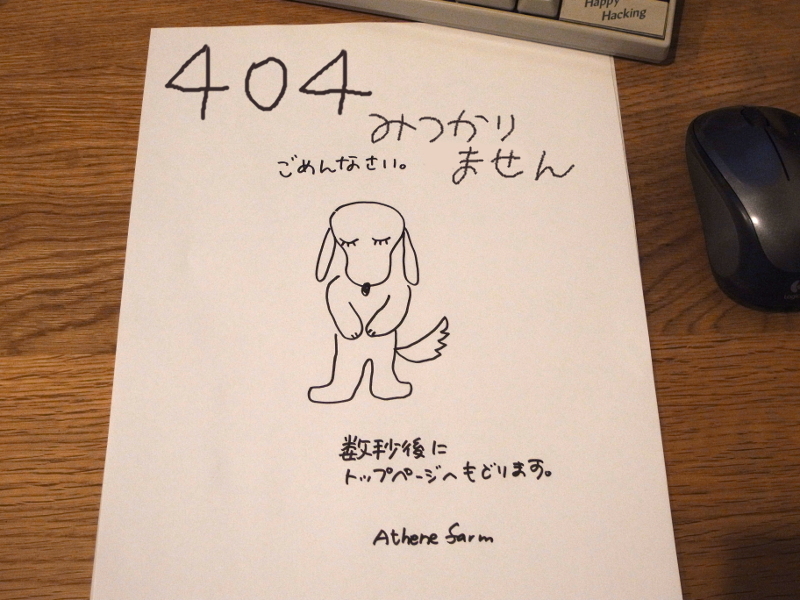 Happy
Hacking
404
みつかり
ません
ごめんなさい。
数秒後に
トップページへもどります。
Athene farm